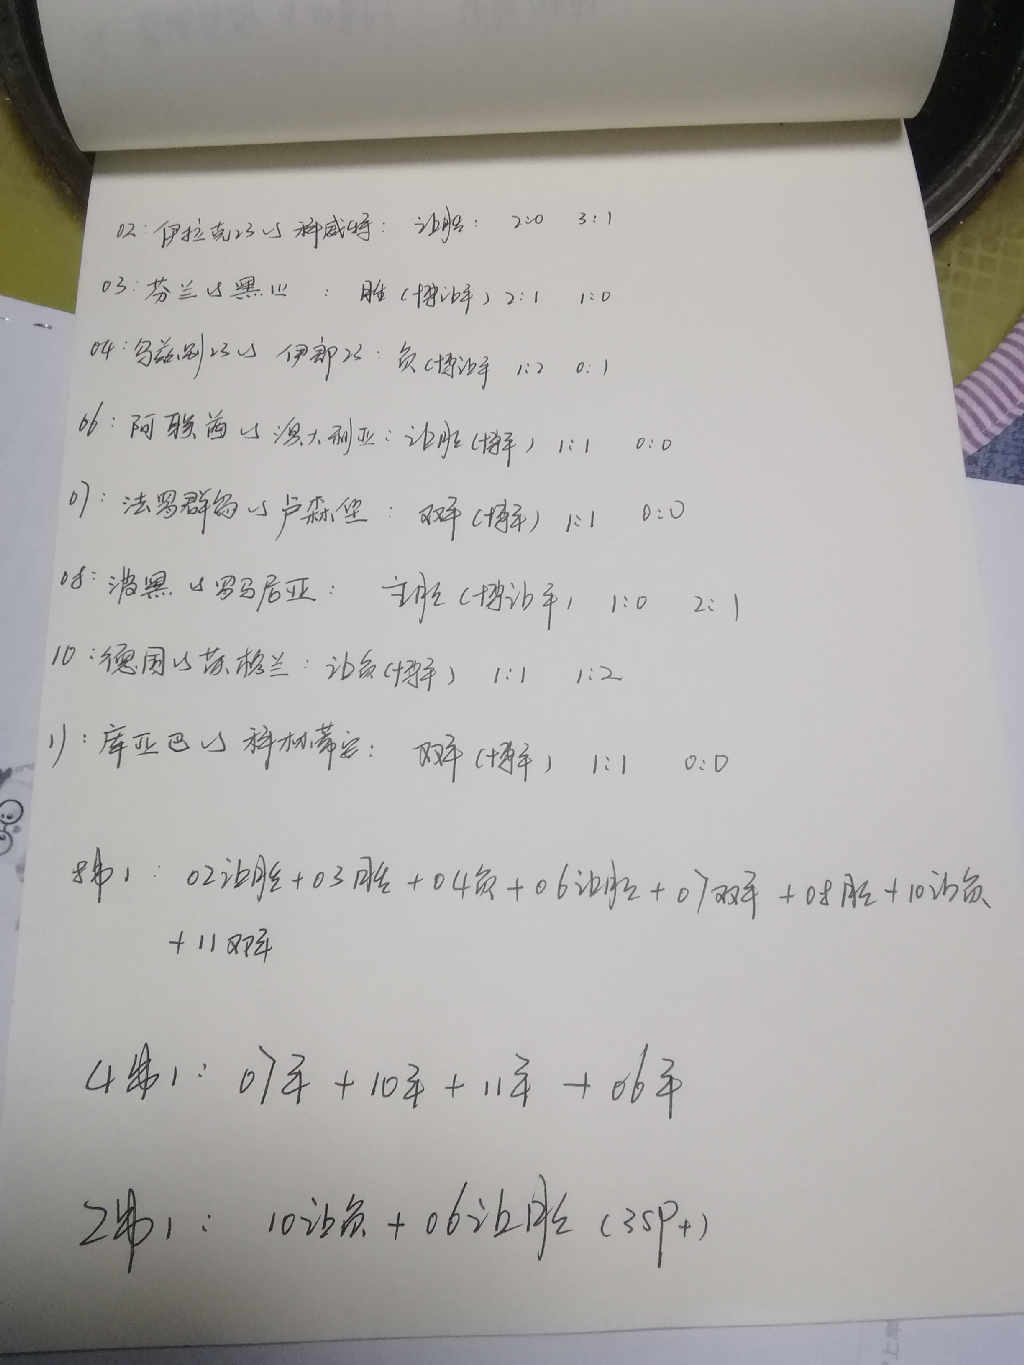 02：伊拉克23 VS 科威特：让胜：2:0 3:1
03：芬兰 VS 黑山：胜（博让平）2:1 1:0
04：乌兹别23 VS 伊朗23：负（博让平 1:2 0:1
06：阿联酋 VS 澳大利亚：让胜（博平）1:1 0:0
07：法罗群岛 VS 卢森堡：双平（博平）1:1 0:0
08：波黑 VS 罗马尼亚：主胜（博让平）1:0 2:1
10：德国 VS 苏格兰：让负（博平）1:1 1:2
11：库亚巴 VS 科林蒂安：双平（博平）1:1 0:0
8串1：02让胜+03胜+04负+06让胜+07双平+08胜+10让负
+11双平
4串1：07平+10平+11平+06平
2串1：10让负+06让胜（3SP+）